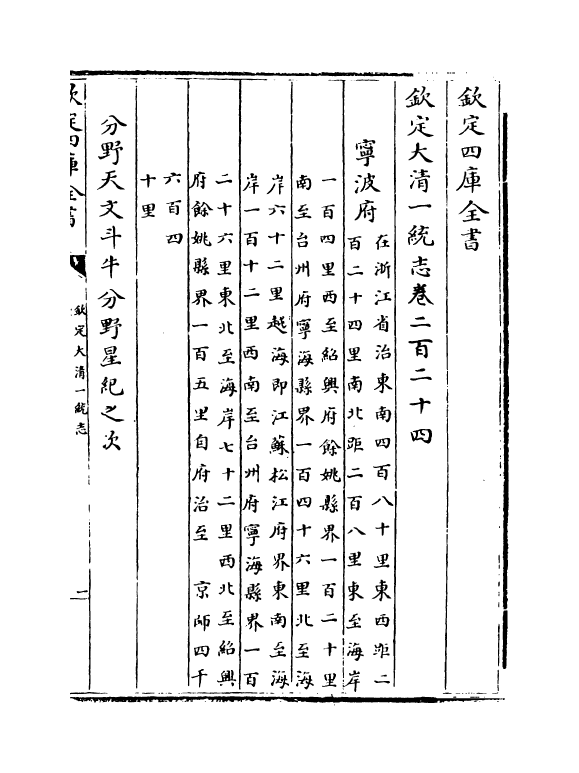 欽定四庫全書
欽定大清一統志卷二百二十四
寧波府
在浙江省治東南四百八十里東西距二
百二十四里南北距二百八里東至海岸
一百四里西至紹興府餘姚縣界一百二十里
南至台州府寧海縣界一百四十六里北至海
岸六十二里越海即江蘇松江府界東南至海
岸一百十二里西南至台州府寧海縣界一百
二十六里東北至海岸七十二里西北至紹興
府餘姚縣界一百五里自府治至 京師四千
六百四
十里
分野天文斗牛分野星紀之次
欽定四庫全書
欽定大清一統志
二